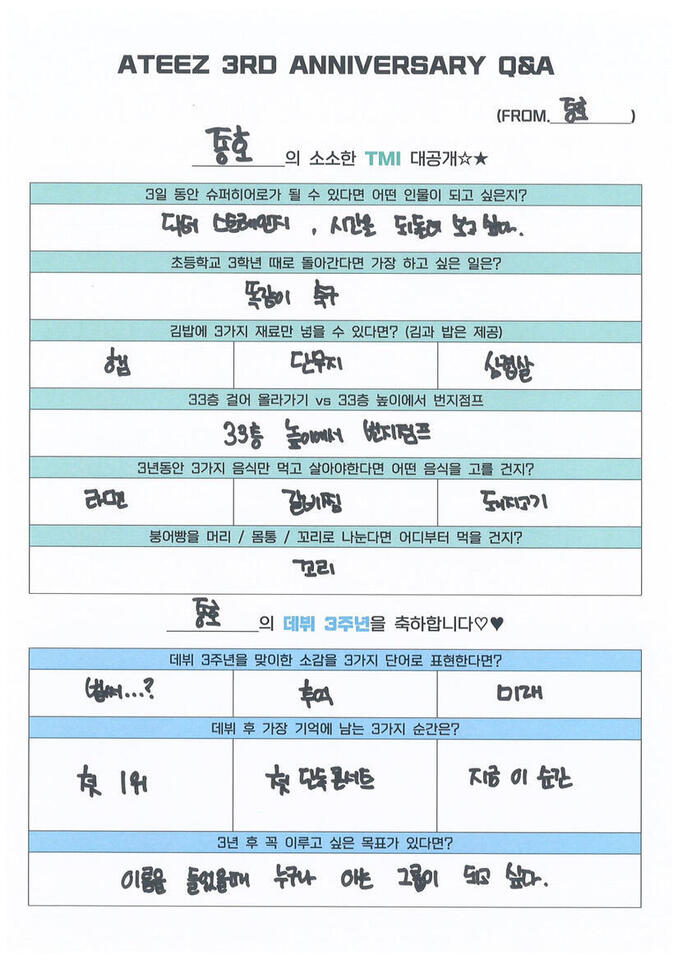 ATEEZ 3RD ANNIVERSARY Q&A
(FROM. 종호 )
종호 의 소소한 TMI 대공개☆★
3일 동안 슈퍼히어로가 될 수 있다면 어떤 인물이 되고 싶은지?
닥터 스트레인지, 시간을 되돌려 보고 싶다.
초등학교 3학년 때로 돌아간다면 가장 하고 싶은 일은?
똑같이 축구
김밥에 3가지 재료만 넣을 수 있다면? (김과 밥은 제공)
햄 단무지 삼겹살
33층 걸어 올라가기 vs 33층 높이에서 번지점프
33층 높이에서 번지점프
3년동안 3가지 음식만 먹고 살아야한다면 어떤 음식을 고를 건지?
라면 갈비찜 돼지고기
붕어빵을 머리 / 몸통 / 꼬리로 나눈다면 어디부터 먹을 건지?
꼬리
종호 의 데뷔 3주년을 축하합니다♡♥
데뷔 3주년을 맞이한 소감을 3가지 단어로 표현한다면?
벌써...? 추억 미래
데뷔 후 가장 기억에 남는 3가지 순간은?
첫 1위 첫 단독콘서트 지금 이 순간
3년 후 꼭 이루고 싶은 목표가 있다면?
이름을 들었을때 누구나 아는 그룹이 되고 싶다.